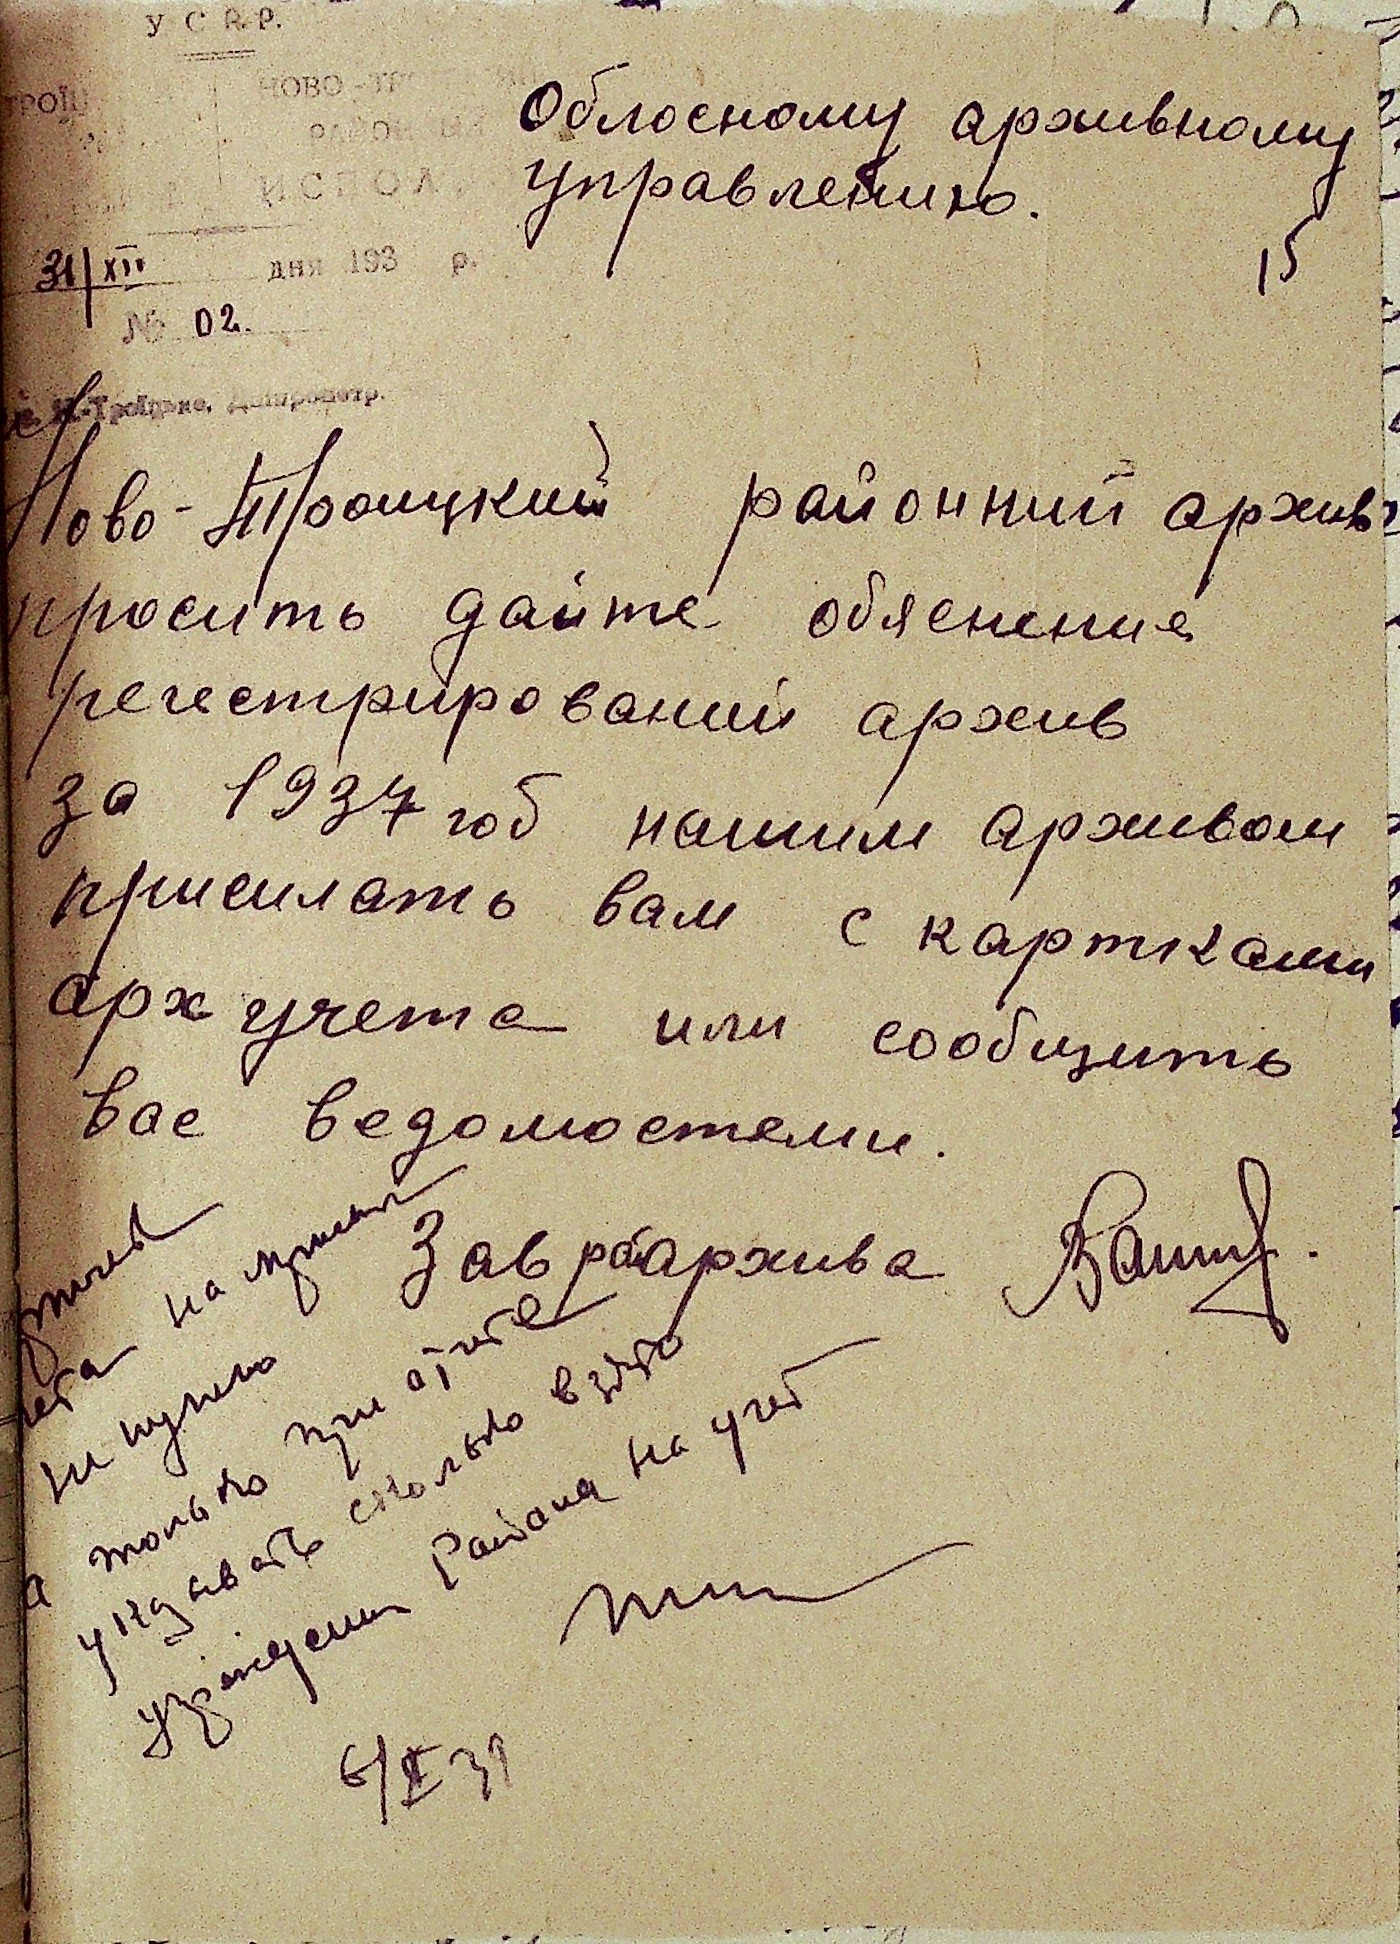 У С Р Р.
НОВО-ТРО
РАЙОН
ИСПОЛ
31/XII дня 193 р.
№ 02.
Н-Троїцьке, Дніпропетр.
Облосному архивному
управлению.
15
Ново-Троицкий районний архив
просить дайте обяснение
регестрирований архив
за 1937 год нашим архивом
присилать вам с картками
арх учета или сообщить
вас ведомостями.
Зав райархива
на
не нужно
а только при
указывать сколько взято
учреждении района на учет
6/I 39